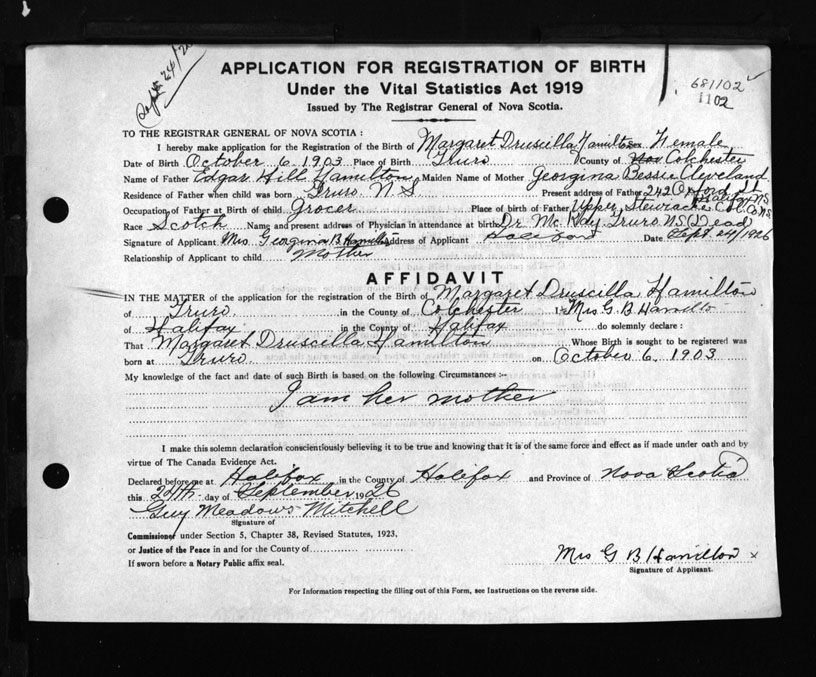 Sept 24/26
APPLICATION FOR REGISTRATION OF BIRTH
Under the Vital Statistics Act 1919
Issued by The Registrar General of Nova Scotia.
681102
1102
TO THE REGISTRAR GENERAL OF NOVA SCOTIA :
I hereby make application for the Registration of the Birth of Margaret Druscilla Hamilton sex Female
Date of Birth October 6 1903 Place of Birth Truro County of Colchester
Name of Father Edgar Hill Hamilton Maiden Name of Mother Georgina Bessie Cleveland
Residence of Father when child was born Truro N.S Present address of Father 242 Oxford St Halifax NS
Occupation of Father at Birth of child Grocer Place of birth of Father Upper Stewiacke Col. Co NS
Race Scotch Name and present address of Physician in attendance at birth Dr McKay Truro NS (Dead)
Signature of Applicant Mrs Georgina B Hamilton Address of Applicant Halifax Date Sept 24/1926
Relationship of Applicant to child Mother
AFFIDAVIT
IN THE MATTER of the application for the registration of the Birth of Margaret Druscilla Hamilton
of Truro in the County of Colchester I Mrs G B Hamilto
of Halifax in the County of Halifax do solemnly declare :
That Margaret Druscilla Hamilton Whose Birth is sought to be registered was
born at Truro on October 6 1903
My knowledge of the fact and date of such Birth is based on the following Circumstances :-
I am her mother
I make this solemn declaration conscientiously believing it to be true and knowing that it is of the same force and effect as if made under oath and by
virtue of The Canada Evidence Act.
Declared before me at Halifax in the County of Halifax and Province of Nova Scotia
this 24th day of September 1926
Guy Meadows Mitchell
Signature of
Commissioner under Section 5, Chapter 38, Revised Statutes, 1923,
or Justice of the Peace in and for the County of
If sworn before a Notary Public affix seal.
Mrs G B Hamilton x
Signature of Applicant.
For Information respecting the filling out of this Form, see Instructions on the reverse side.